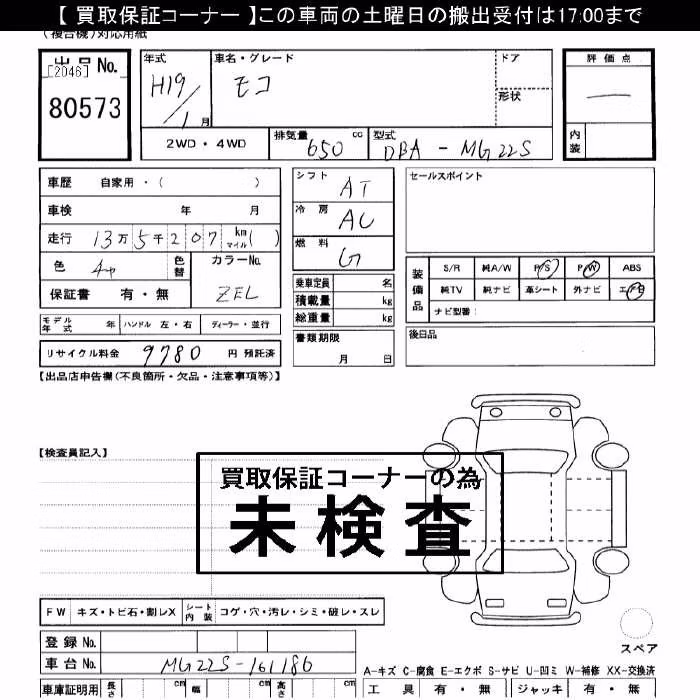 【 買取保証コーナー 】この車両の土曜日の搬出受付は17:00まで
(複合機)対応用紙
出品 No.
[2046]
80573
年式
H19/1月
車名・グレード
モコ
ドア
形状
評価点
内装
2WD・4WD
排気量 650 cc
型式 DBA - MG22S
車歴 自家用・( )
車検 年 月
走行 13万5千207 km マイル( )
色 色替
カラーNo. ZEL
保証書 有・無
シフト AT
冷房 AC
燃料 G
乗車定員 名
積載量 kg
総重量 kg
セールスポイント
装備品
S/R 純A/W P/S P/W ABS
純TV 純ナビ 革シート 外ナビ エアB
ナビ型番:
モデル年式 年 ハンドル 左・右 ディーラー・並行
書類期限 月 日
後日品
リサイクル料金 9780 円 預託済
【出品店申告欄(不良箇所・欠品・注意事項等)】
【検査員記入】
買取保証コーナーの為
未検査
FW キズ・トビ石・割レX シート内装 コゲ・穴・汚レ・シミ・破レ・スレ
スペア
登録 No.
車台 No. MG22S-161186
A-キズ C-腐食 E-エクボ S-サビ U-凹ミ W-補修 XX-交換済
車庫証明用 長さ cm 幅 cm 高さ cm
工具 有・無 ジャッキ 有・無